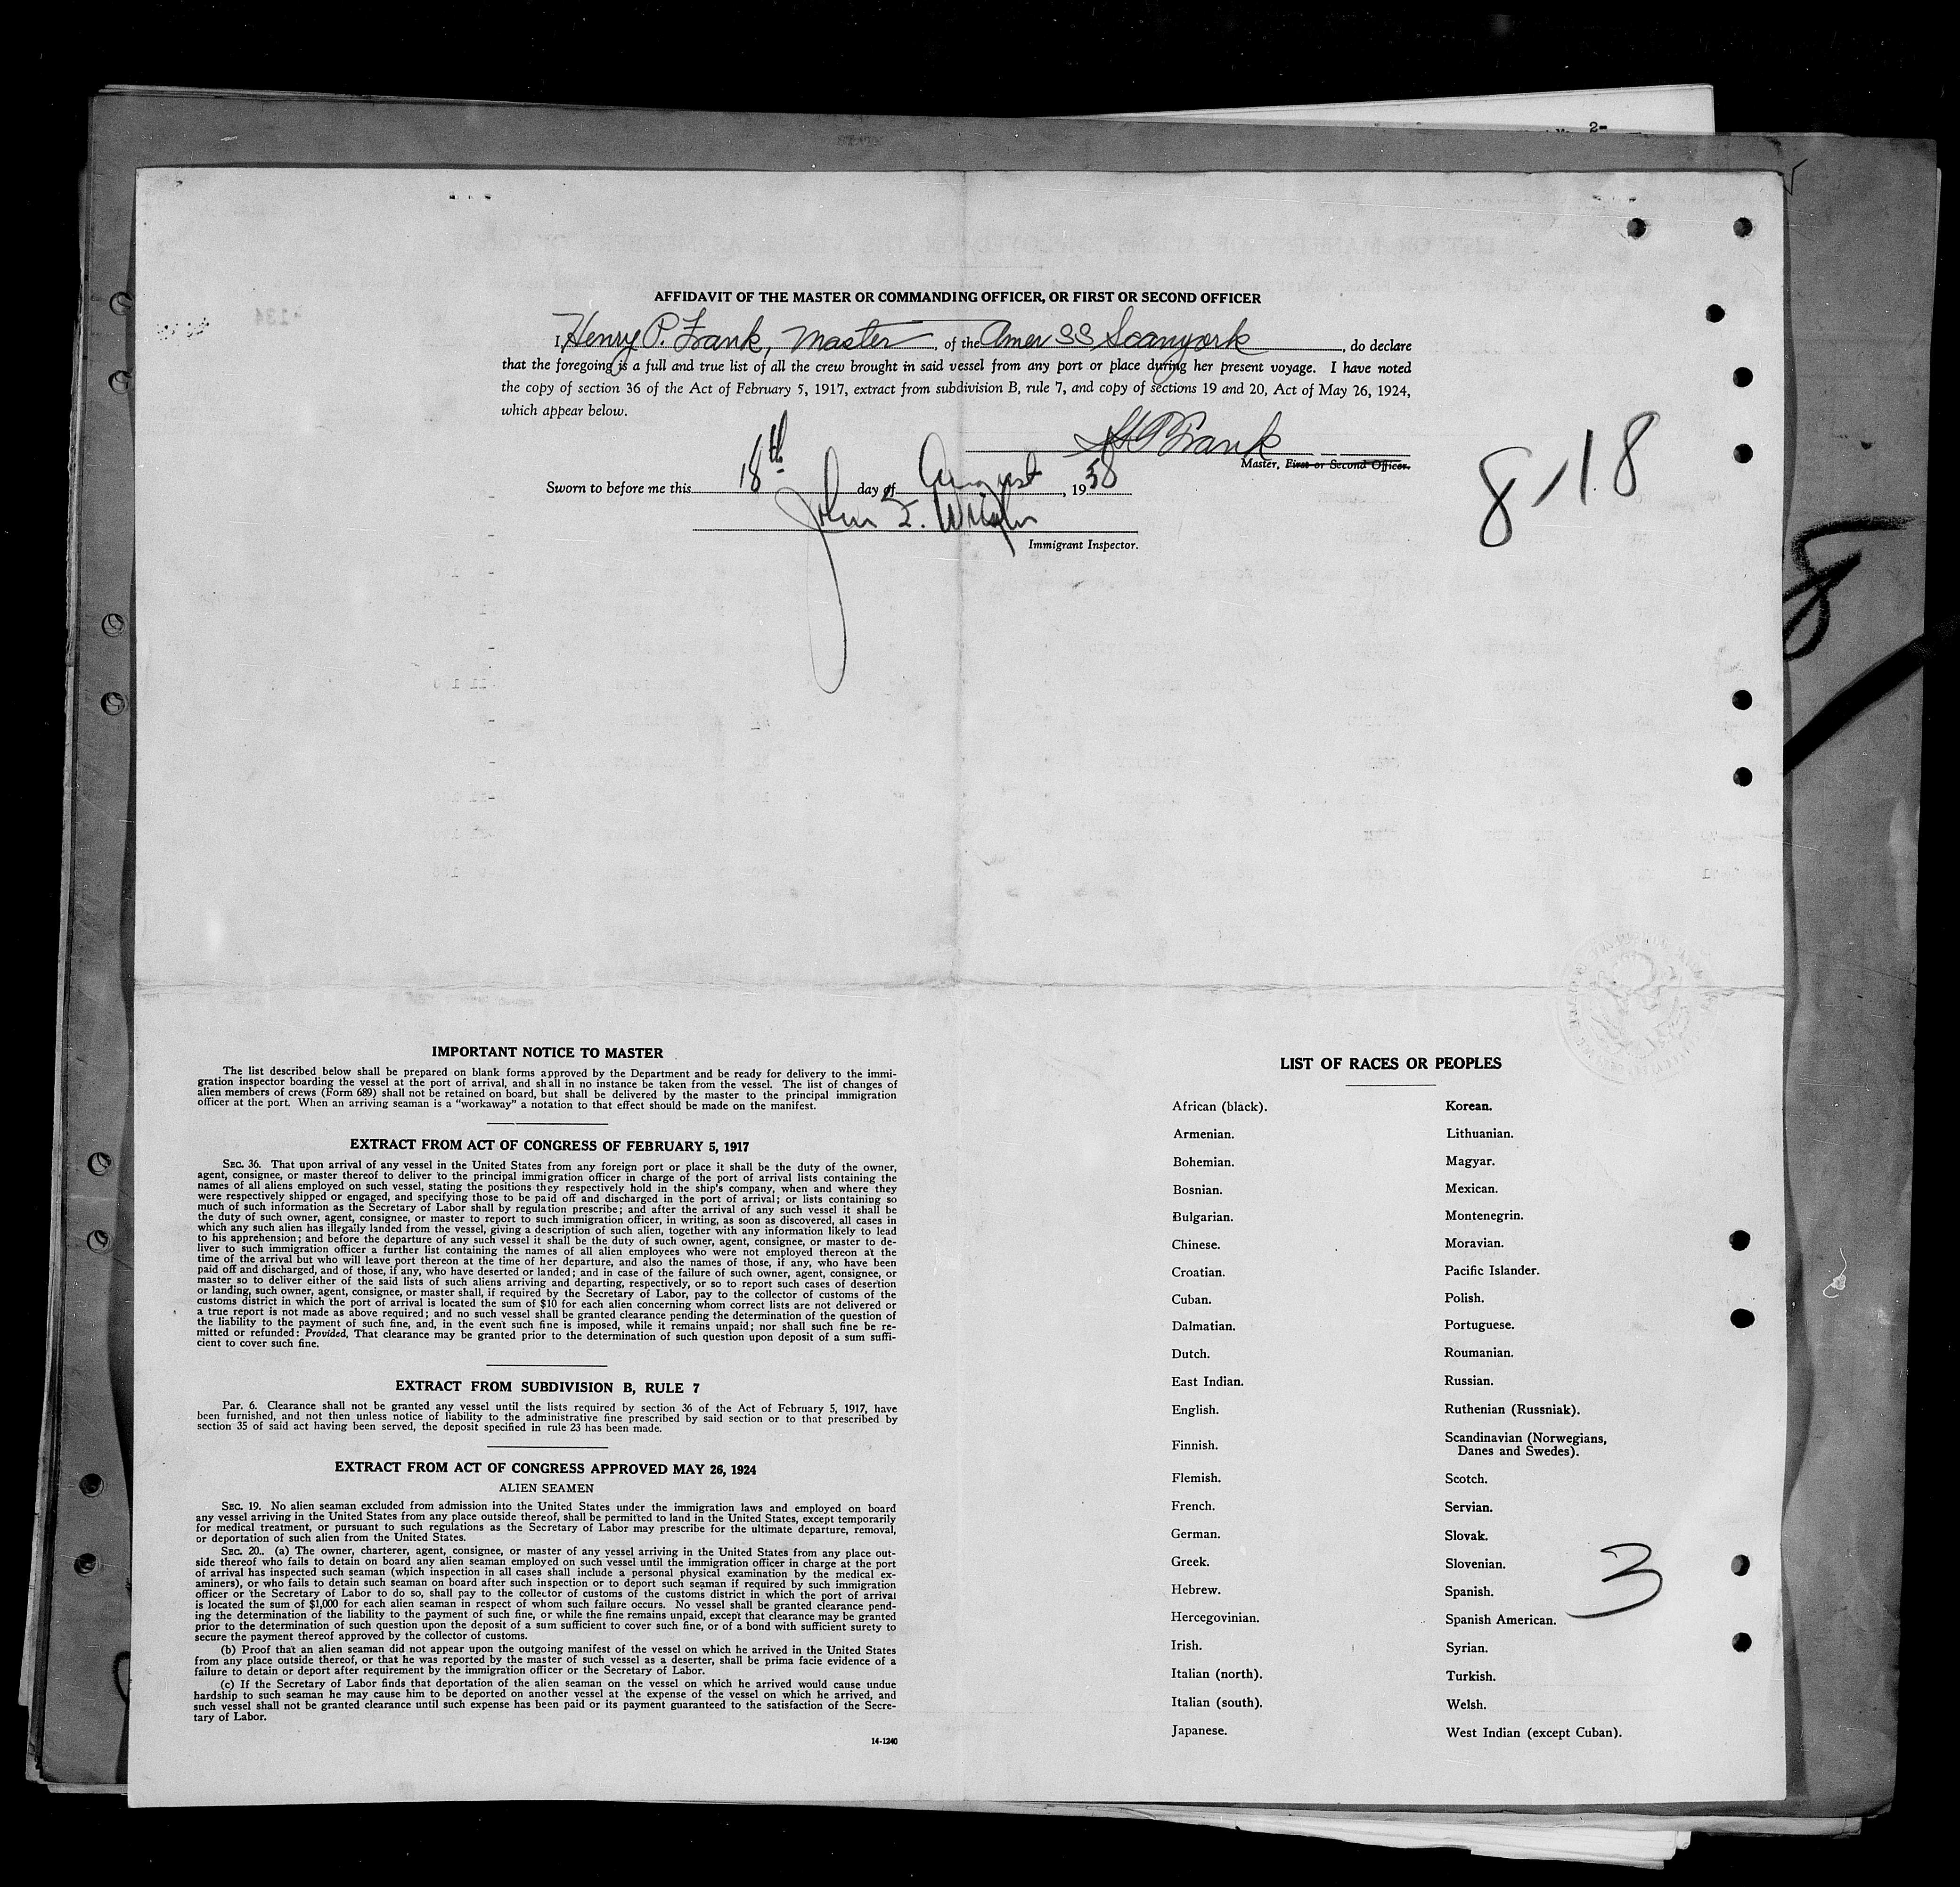 2-
AFFIDAVIT OF THE MASTER OR COMMANDING OFFICER, OR FIRST OR SECOND OFFICER
I, Henry P. Frank, Master, of the Amer SS Scanyork, do declare
that the foregoing is a full and true list of all the crew brought in said vessel from any port or place during her present voyage. I have noted
the copy of section 36 of the Act of February 5, 1917, extract from subdivision B, rule 7, and copy of sections 19 and 20, Act of May 26, 1924,
which appear below.
H P Frank
Master, First or Second Officer.
Sworn to before me this 18th day of August, 1938
John F.
Immigrant Inspector.
8-18
8
IMPORTANT NOTICE TO MASTER
The list described below shall be prepared on blank forms approved by the Department and be ready for delivery to the immi-
gration inspector boarding the vessel at the port of arrival, and shall in no instance be taken from the vessel. The list of changes of
alien members of crews (Form 689) shall not be retained on board, but shall be delivered by the master to the principal immigration
officer at the port. When an arriving seaman is a "workaway" a notation to that effect should be made on the manifest.
EXTRACT FROM ACT OF CONGRESS OF FEBRUARY 5, 1917
SEC. 36. That upon arrival of any vessel in the United States from any foreign port or place it shall be the duty of the owner,
agent, consignee, or master thereof to deliver to the principal immigration officer in charge of the port of arrival lists containing the
names of all aliens employed on such vessel, stating the positions they respectively hold in the ship's company, when and where they
were respectively shipped or engaged, and specifying those to be paid off and discharged in the port of arrival; or lists containing so
much of such information as the Secretary of Labor shall by regulation prescribe; and after the arrival of any such vessel it shall be
the duty of such owner, agent, consignee, or master to report to such immigration officer, in writing, as soon as discovered, all cases in
which any such alien has illegally landed from the vessel, giving a description of such alien, together with any information likely to lead
to his apprehension; and before the departure of any such vessel it shall be the duty of such owner, agent, consignee, or master to de-
liver to such immigration officer a further list containing the names of all alien employees who were not employed thereon at the
time of the arrival but who will leave port thereon at the time of her departure, and also the names of those, if any, who have been
paid off and discharged, and of those, if any, who have deserted or landed; and in case of the failure of such owner, agent, consignee, or
master so to deliver either of the said lists of such aliens arriving and departing, respectively, or so to report such cases of desertion
or landing, such owner, agent, consignee, or master shall, if required by the Secretary of Labor, pay to the collector of customs of the
customs district in which the port of arrival is located the sum of $10 for each alien concerning whom correct lists are not delivered or
a true report is not made as above required; and no such vessel shall be granted clearance pending the determination of the question of
the liability to the payment of such fine, and, in the event such fine is imposed, while it remains unpaid; nor shall such fine be re-
mitted or refunded: Provided, That clearance may be granted prior to the determination of such question upon deposit of a sum suffi-
cient to cover such fine.
EXTRACT FROM SUBDIVISION B, RULE 7
PAR. 6. Clearance shall not be granted any vessel until the lists required by section 36 of the Act of February 5, 1917, have
been furnished, and not then unless notice of liability to the administrative fine prescribed by said section or to that prescribed by
section 35 of said act having been served, the deposit specified in rule 23 has been made.
EXTRACT FROM ACT OF CONGRESS APPROVED MAY 26, 1924
ALIEN SEAMEN
SEC. 19. No alien seaman excluded from admission into the United States under the immigration laws and employed on board
any vessel arriving in the United States from any place outside thereof, shall be permitted to land in the United States, except temporarily
for medical treatment, or pursuant to such regulations as the Secretary of Labor may prescribe for the ultimate departure, removal,
or deportation of such alien from the United States.
SEC. 20.. (a) The owner, charterer, agent, consignee, or master of any vessel arriving in the United States from any place out-
side thereof who fails to detain on board any alien seaman employed on such vessel until the immigration officer in charge at the port
of arrival has inspected such seaman (which inspection in all cases shall include a personal physical examination by the medical ex-
aminers), or who fails to detain such seaman on board after such inspection or to deport such seaman if required by such immigration
officer or the Secretary of Labor to do so, shall pay to the collector of customs of the customs district in which the port of arrival
is located the sum of $1,000 for each alien seaman in respect of whom such failure occurs. No vessel shall be granted clearance pend-
ing the determination of the liability to the payment of such fine, or while the fine remains unpaid, except that clearance may be granted
prior to the determination of such question upon the deposit of a sum sufficient to cover such fine, or of a bond with sufficient surety to
secure the payment thereof approved by the collector of customs.
(b) Proof that an alien seaman did not appear upon the outgoing manifest of the vessel on which he arrived in the United States
from any place outside thereof, or that he was reported by the master of such vessel as a deserter, shall be prima facie evidence of a
failure to detain or deport after requirement by the immigration officer or the Secretary of Labor.
(c) If the Secretary of Labor finds that deportation of the alien seaman on the vessel on which he arrived would cause undue
hardship to such seaman he may cause him to be deported on another vessel at the expense of the vessel on which he arrived, and
such vessel shall not be granted clearance until such expense has been paid or its payment guaranteed to the satisfaction of the Secre-
tary of Labor.
14-1240
LIST OF RACES OR PEOPLES
African (black).
Armenian.
Bohemian.
Bosnian.
Bulgarian.
Chinese.
Croatian.
Cuban.
Dalmatian.
Dutch.
East Indian.
English.
Finnish.
Flemish.
French.
German.
Greek.
Hebrew.
Hercegovinian.
Irish.
Italian (north).
Italian (south).
Japanese.
Korean.
Lithuanian.
Magyar.
Mexican.
Montenegrin.
Moravian.
Pacific Islander.
Polish.
Portuguese.
Roumanian.
Russian.
Ruthenian (Russniak).
Scandinavian (Norwegians,
Danes and Swedes).
Scotch.
Servian.
Slovak.
Slovenian.
Spanish.
Spanish American.
Syrian.
Turkish.
Welsh.
West Indian (except Cuban).
3